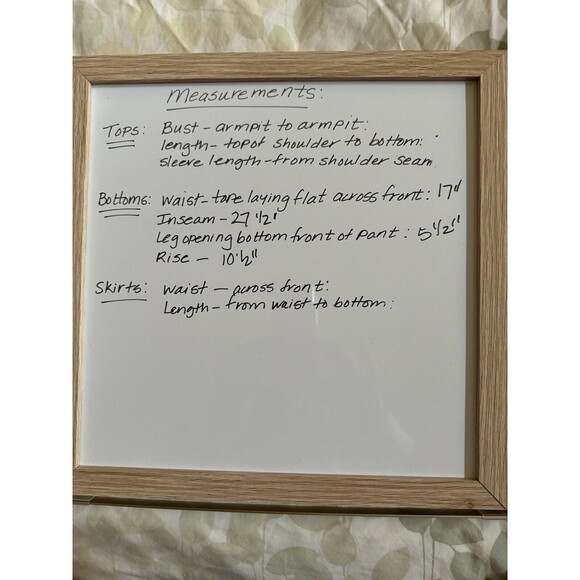 Measurements:
Tops: Bust - armpit to armpit:
length - top of shoulder to bottom:
sleeve length - from shoulder seam
Bottoms: Waist - tape laying flat across front: 17"
Inseam - 27 1/2"
Leg opening bottom front of pant: 5 1/2"
Rise - 10 1/2"
Skirts: Waist - across front:
Length - from waist to bottom: